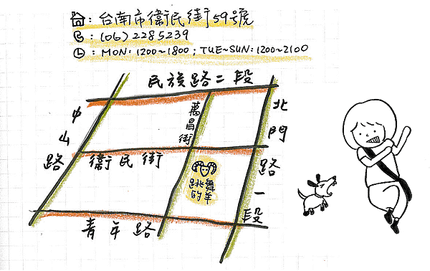 台南市衛民街59號
(06) 2285239
MON: 1200~1800 ; TUE~SUN: 1200~2100
民族路二段
中山路
萬昌街
北門路一段
衛民街
跳舞的羊
青年路